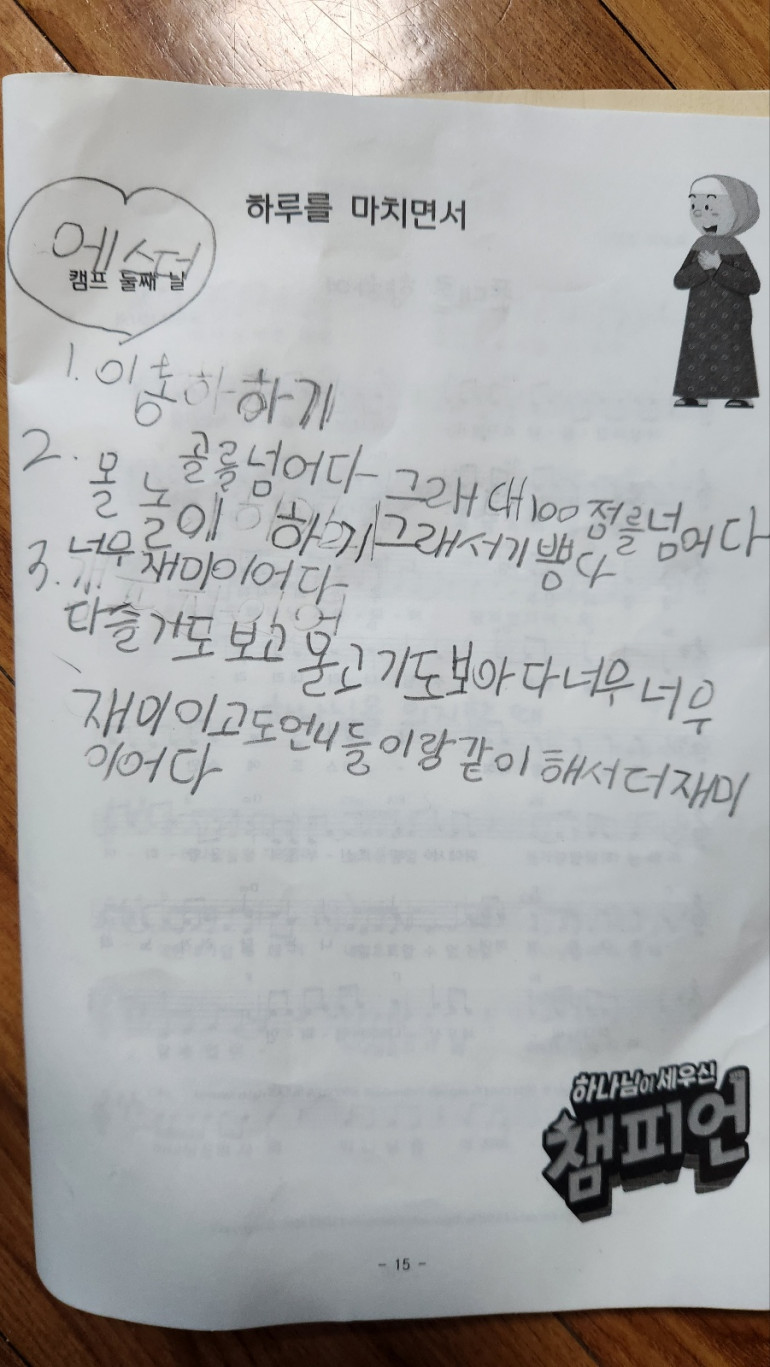 하루를 마치면서
에스더
캠프 둘째 날
1. 이동하 하기
2. 골를넘어다 그래 대100점를넘어다
물놀이 하기 그래서기쁭다
3. 너무 재미이어다
다슬기도 보고 물고기도보아다 너무너무
재미이고도언니들이랑같이해서더재미
이어다
하나님이 세우신
챔피언
- 15 -